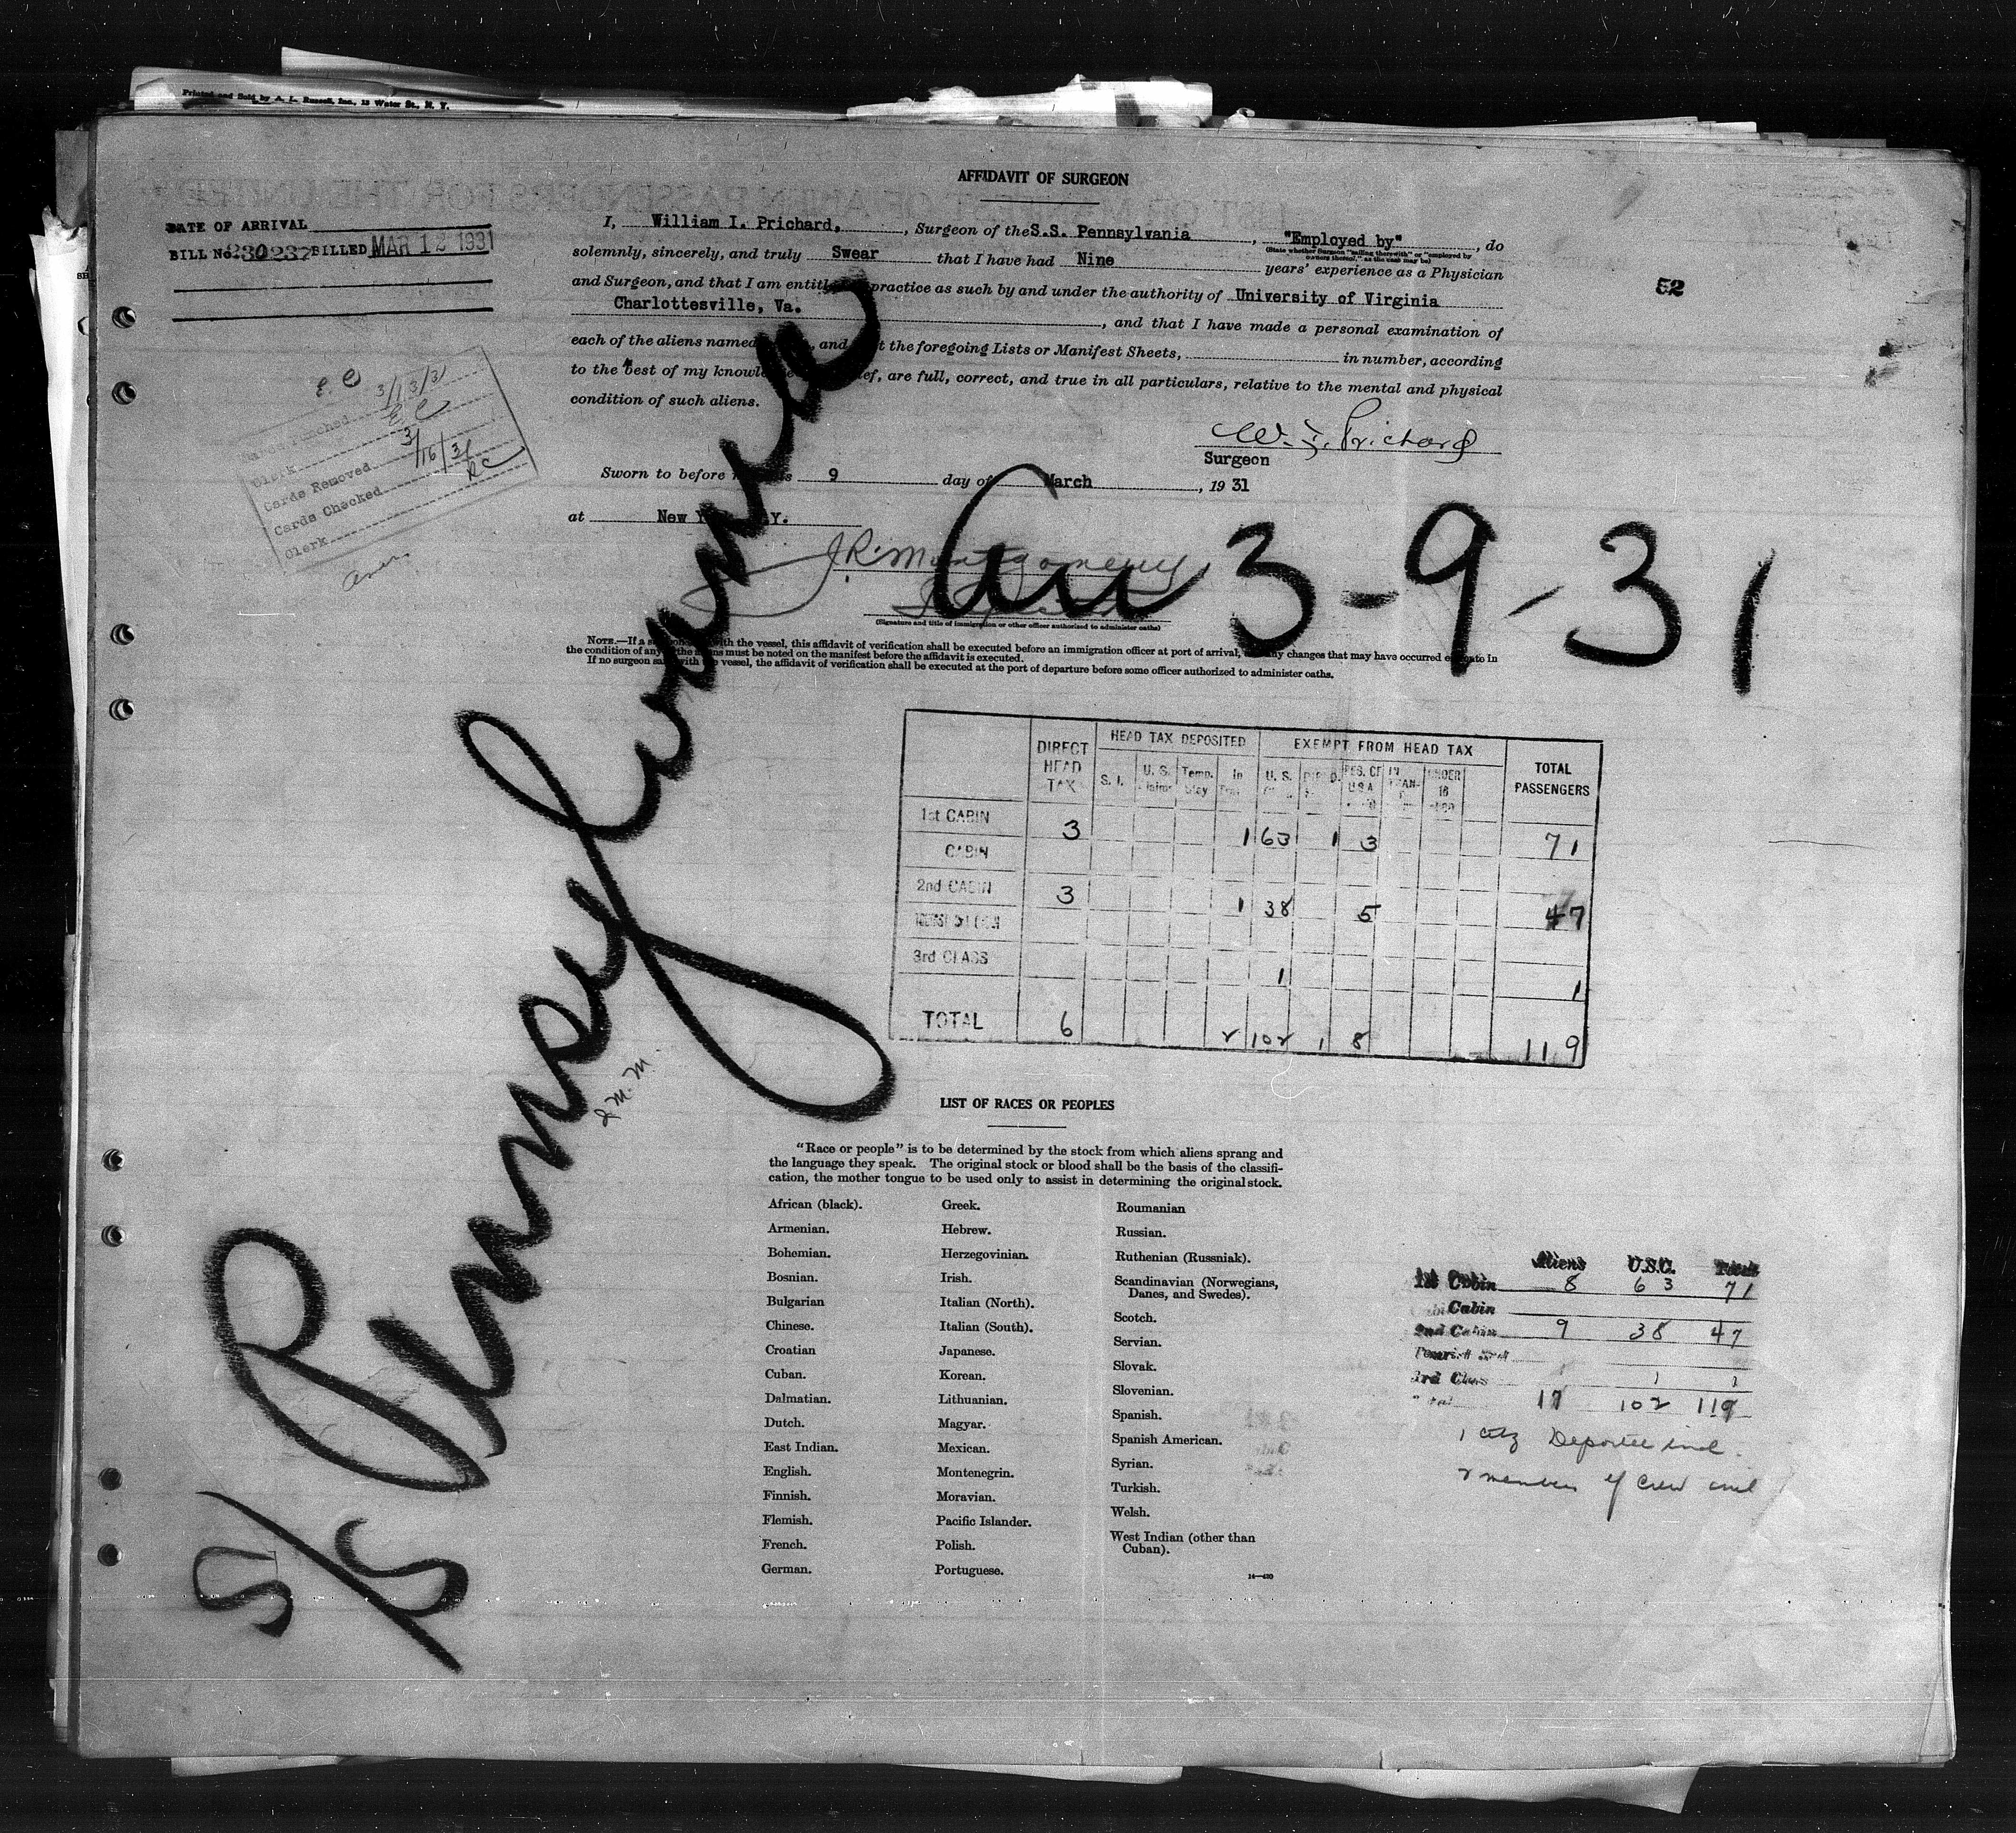 Printed and Sold by A. L. Russell, Inc., 13 Water St., N. Y.
AFFIDAVIT OF SURGEON
DATE OF ARRIVAL
BILL No. 230237 BILLED MAR 12 1931
I, William I. Prichard, , Surgeon of the S.S. Pennsylvania , "Employed by" , do
(State whether Surgeon "sailing therewith" or "employed by
owners thereof," as the case may be)
solemnly, sincerely, and truly Swear that I have had Nine years' experience as a Physician
and Surgeon, and that I am practice as such by and under the authority of University of Virginia
Charlottesville, Va. , and that I have made a personal examination of
each of the aliens named , and the foregoing Lists or Manifest Sheets, in number, according
to the best of my , are full, correct, and true in all particulars, relative to the mental and physical
condition of such aliens.
52
E.C
3/13/31
Cards Punched
EC
Clerk
Cards Removed 3/16/31
Cards Checked RC
Clerk
W. I. Prichard
Surgeon
Sworn to before 9 day of March , 19 31
at New Y.
J.R. Montgomery
(Signature and title of immigration or other officer authorized to administer oaths)
NOTE.—If a with the vessel, this affidavit of verification shall be executed before an immigration officer at port of arrival, any changes that may have occurred in
the condition of any the aliens must be noted on the manifest before the affidavit is executed.
If no surgeon with the vessel, the affidavit of verification shall be executed at the port of departure before some officer authorized to administer oaths.
S/S Pennsylvania
3-9-31
J.M.M.
DIRECT HEAD TAX HEAD TAX DEPOSITED EXEMPT FROM HEAD TAX TOTAL PASSENGERS
S. I. U. S. Temp. Stay In U. S. RES. OF U S A IN TRAN- UNDER 16
1st CABIN 3 1 63 1 3 71
CABIN
2nd CABIN 3 1 38 5 47
3rd CLASS 1 1
TOTAL 6 2 102 1 8 119
LIST OF RACES OR PEOPLES
"Race or people" is to be determined by the stock from which aliens sprang and
the language they speak. The original stock or blood shall be the basis of the classifi-
cation, the mother tongue to be used only to assist in determining the original stock.
African (black).
Armenian.
Bohemian.
Bosnian.
Bulgarian
Chinese.
Croatian
Cuban.
Dalmatian.
Dutch.
East Indian.
English.
Finnish.
Flemish.
French.
German.
Greek.
Hebrew.
Herzegovinian.
Irish.
Italian (North).
Italian (South).
Japanese.
Korean.
Lithuanian.
Magyar.
Mexican.
Montenegrin.
Moravian.
Pacific Islander.
Polish.
Portuguese.
Roumanian
Russian.
Ruthenian (Russniak).
Scandinavian (Norwegians,
Danes, and Swedes).
Scotch.
Servian.
Slovak.
Slovenian.
Spanish.
Spanish American.
Syrian.
Turkish.
Welsh.
West Indian (other than
Cuban).
14—430
Aliens U.S.C. Total
1st Cabin 8 63 71
Cabin
2nd Cabin 9 38 47
3rd Class 1 1
Total 17 102 119
1 citz Deportee incl.
2 members of crew incl